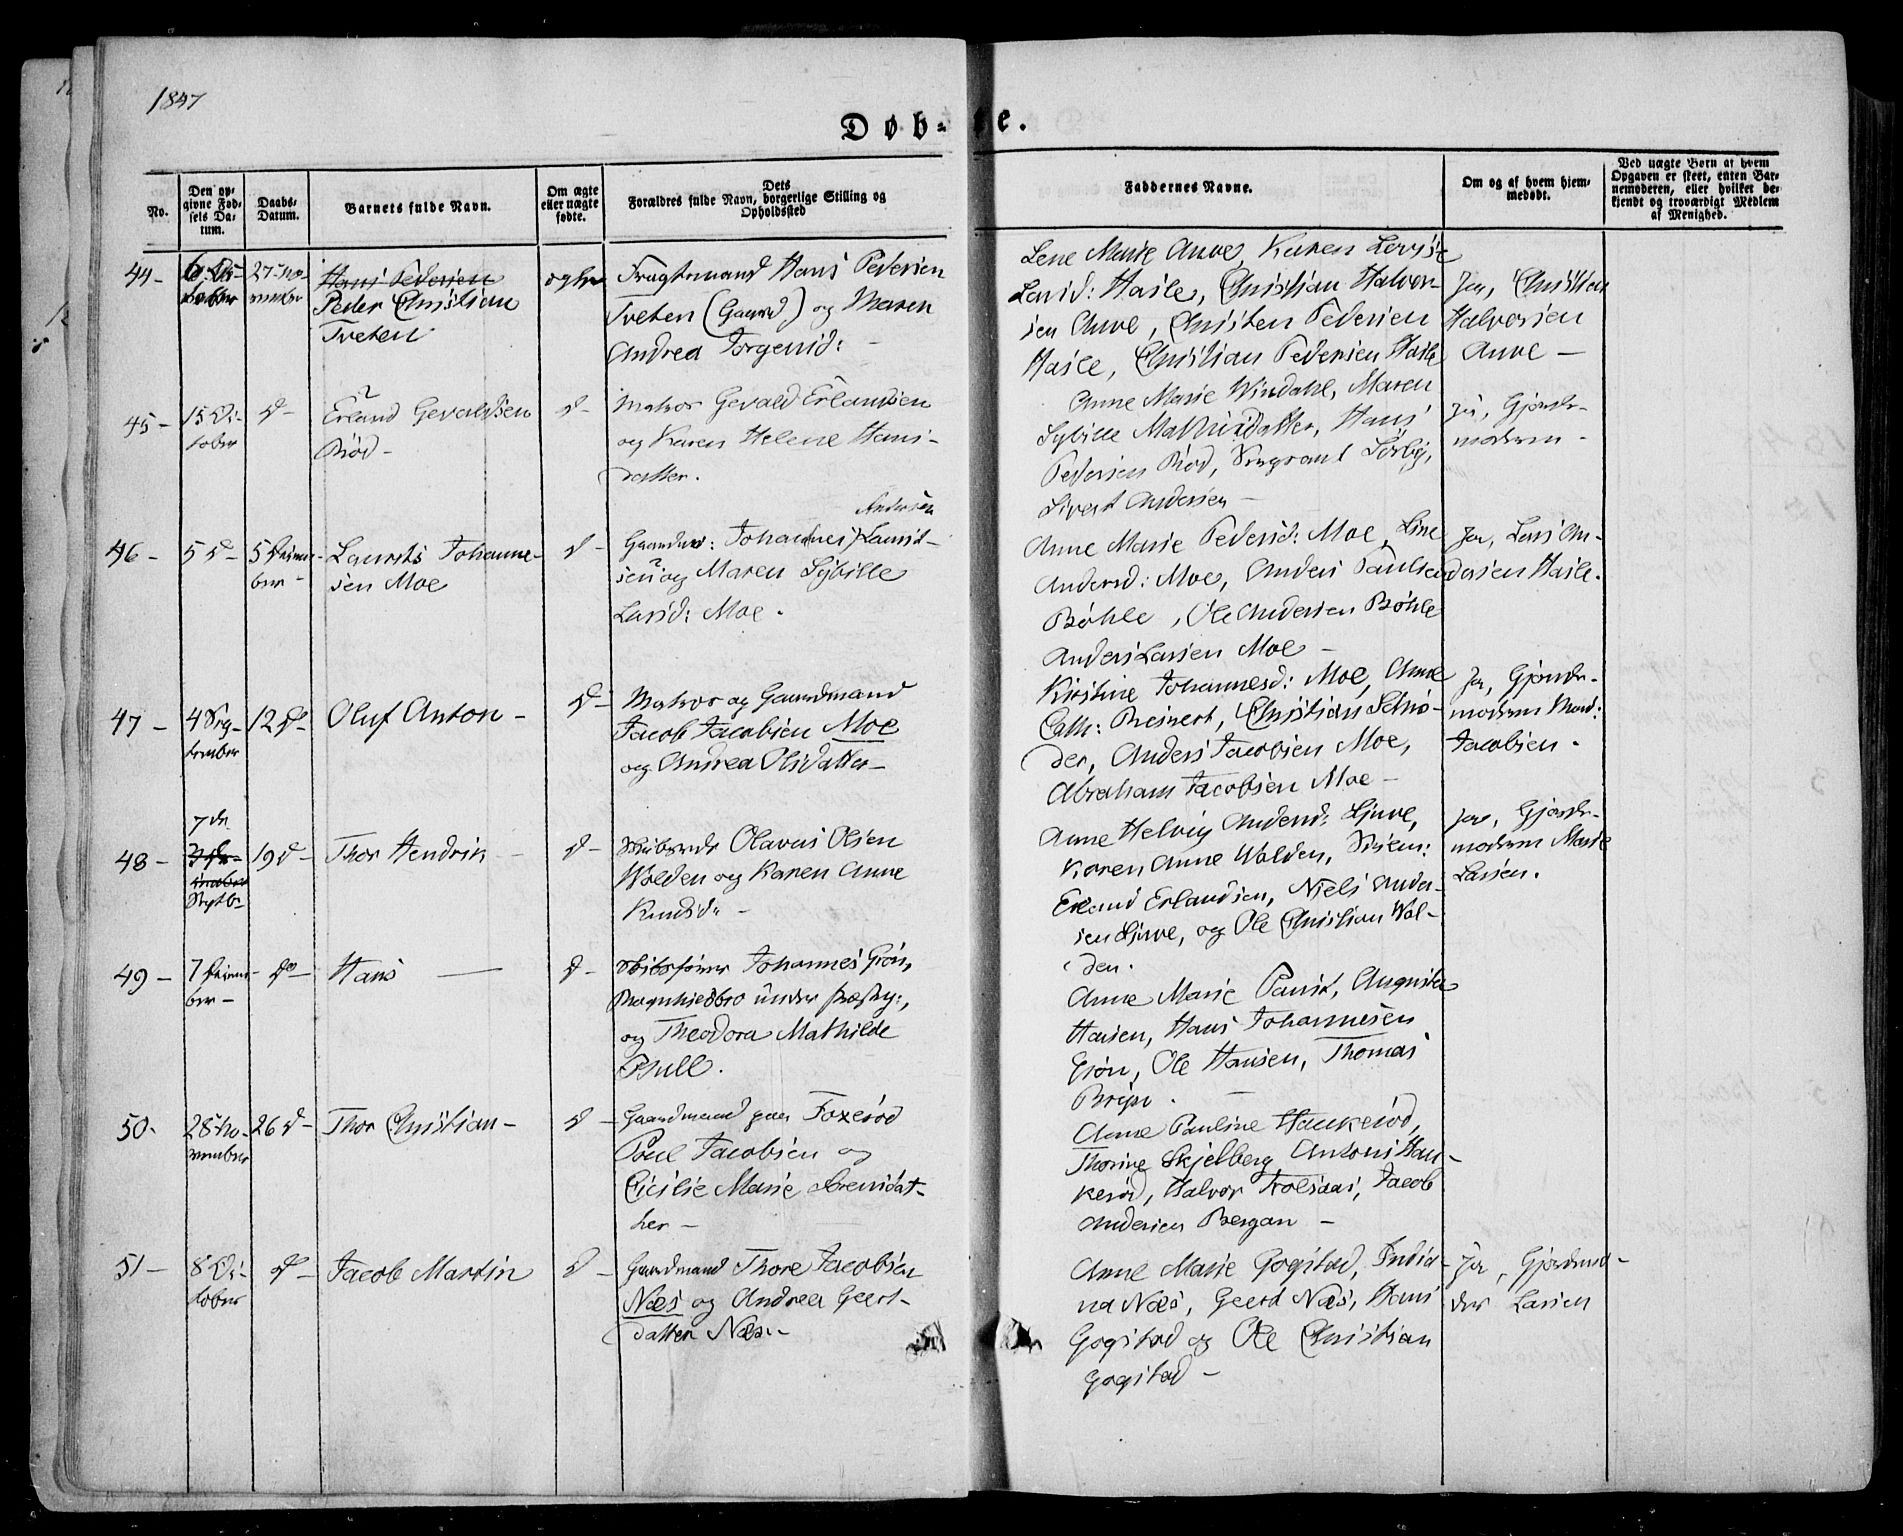 1847
Døb-
e.
No.
Den op-
givne Fød-
sels Da-
tum.
Daabs-
Datum.
Barnets fulde Navn.
Om ægte
eller uægte
fødte.
Dets
Forældres fulde Navn, borgerlige Stilling og
Opholdssted
Faddernes Navne.
Om og af hvem hjem-
medøbt.
Ved uægte Børn af hvem
Opgaven er skeet, enten Bar-
nemoderen, eller hvilket be-
kjendt og troværdigt Medlem
af Menighed.
44-
27 No-
vember
Hans Pedersen
Peder Christian
Tveten
ægte
Fragtemand Hans Pedersen
Tveten (Gaard) og Maren
Andrea Jørgensd: -
Lene Marie Anve, Karen Lovise
Larsd: Hasle, Christian Halvor-
sen Anve, Christen Pedersen
Hasle, Christian Pedersen Hasle
Ja, Christian
Halvorsen
Anve -
45-
15 Oc-
tober
D-
Erland Gevaldsen
Röd -
D-
Matros Gevald Erlandsen
og Karen Helene Hans-
datter.
Anne Marie Windahl, Maren
Sybille Mathisdatter, Hans
Pedersen Röd, Sörbÿ,
Sivert Andersen -
Ja, Gjorde-
moderen -
46-
5 D-
5 Decem-
ber -
Laurits Johanne-
sen Moe
D-
Andersen
Gaardmd: Johannes Laurit-
sen og Maren Sybille
Larsd: Moe.
Anne Marie Pedersd: Moe, Line
Andersd: Moe, Anders Paulsen
Böhle, Ole Andersen Böhle
Anders Larsen Moe -
Ja, Lars An-
dersen Hasle.
47-
4 Sep-
tember
12 D-
Oluf Anton -
D-
Matros og Gaardmand
Jacob Jacobsen Moe
og Andrea Olsdatter -
Kirstine Johannesd: Moe, Anne
Cath: Reinert, Christian Schrö-
der, Anders Jacobsen Moe,
Abraham Jacobsen Moe -
Ja, Gjorde-
moderen Mad:
Jacobsen.
48-
7de
Septbr
19 D-
Thor Hendrik -
D-
Olavus Olsen
Wolden og Karen Anne
Knudsd: -
Anne Helvig Andersd: Hjuve,
Karen Anne Wolden,
Erland Erlandsen, Niels Ander-
sen Hjuve, og Ole Christian Wol-
den.
Ja, Gjorde-
moderen Marie
Larsen.
49-
7 Decem-
ber -
Do-
Hans -
D-
Skibsfører Johannes Grön,
Ragnhildbro under Præstg:,
og Theodora Mathilde
Bull.
Anne Marie Paust, Augusta
Hansen, Hans Johannesen
Grön, Ole Hansen, Thomas
50-
28 No-
vember
26 D-
Thor Christian -
D-
Gaardmand paa Foxeröd
Poul Jacobsen og
Cicilie Marie Sorensdat-
ter -
Anne Pauline Haukeröd,
Thorine Skjelberg, Antoni Hau-
keröd, Halvor Trolsaas, Jacob
Andersen Bergan -
51-
8 Oc-
tober
D-
Jacob Martin
D-
Gaardmand Thore Jacobsen
Næs og Andrea Geert-
datter Næs -
Anne Marie Gogstad, India-
na Næs, Geert Næs, Hans
Gogstad og Ole Christian
Gogstad -
Ja, Gjordemo-
der Larsen